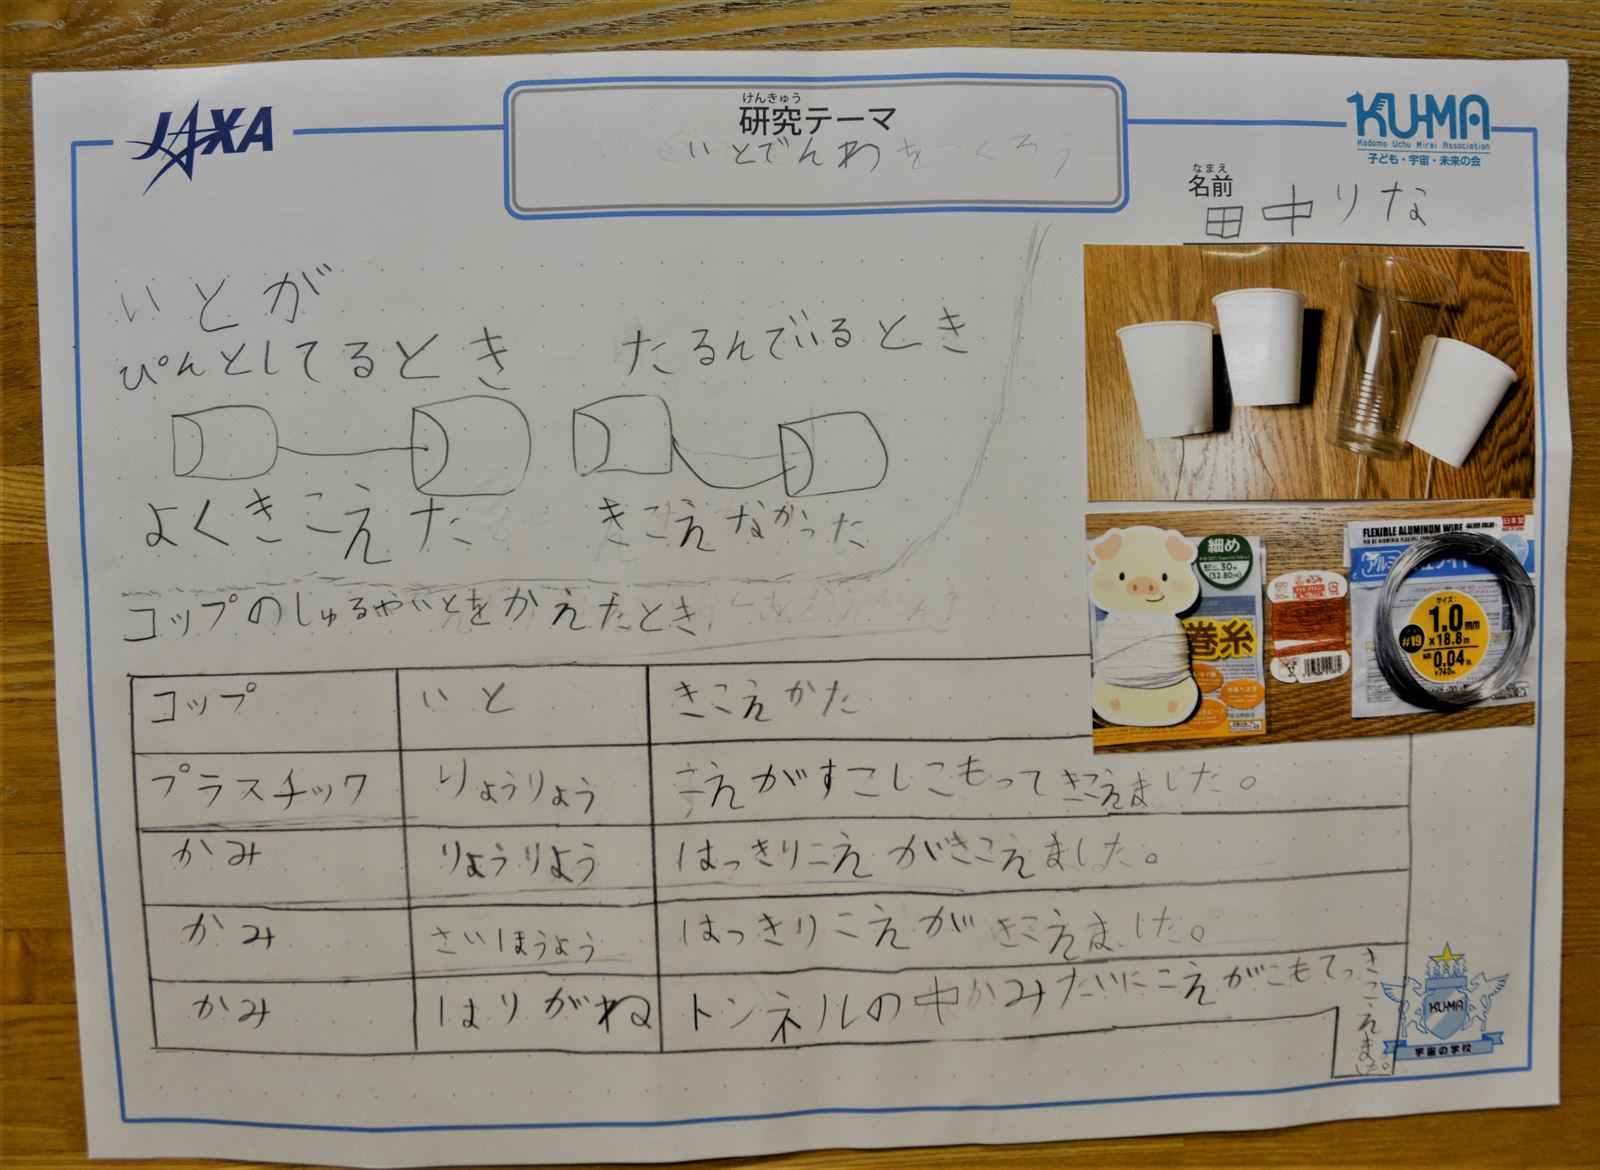 JAXA
けんきゅう
研究テーマ
いとでんわをつくろう
KU-MA
Kodomo Uchu Mirai Association
子ども・宇宙・未来の会
なまえ
名前
田中りな
いとが
ぴんとしてるとき
たるんでいるとき
よくきこえた。
きこえなかった
コップのしゅるやいとをかえたとき
コップ
いと
きこえかた
プラスチック
りょうりょう
こえがすこしこもってきこえました。
かみ
りょうりよう
はっきりこえがきこえました。
かみ
さいほうよう
はっきりこえがきこえました。
かみ
はりがね
トンネルの中かみたいにこえがこもてっきこえました。
細め
30m
(32.80yd)
巻糸
#20
30m
FLEXIBLE ALUMINUM WIRE -SILVER COLOR-
日本製
サイズ:
#19
1.0mm
x18.8m
0.04in.
x740in.
KU-MA
宇宙の学校